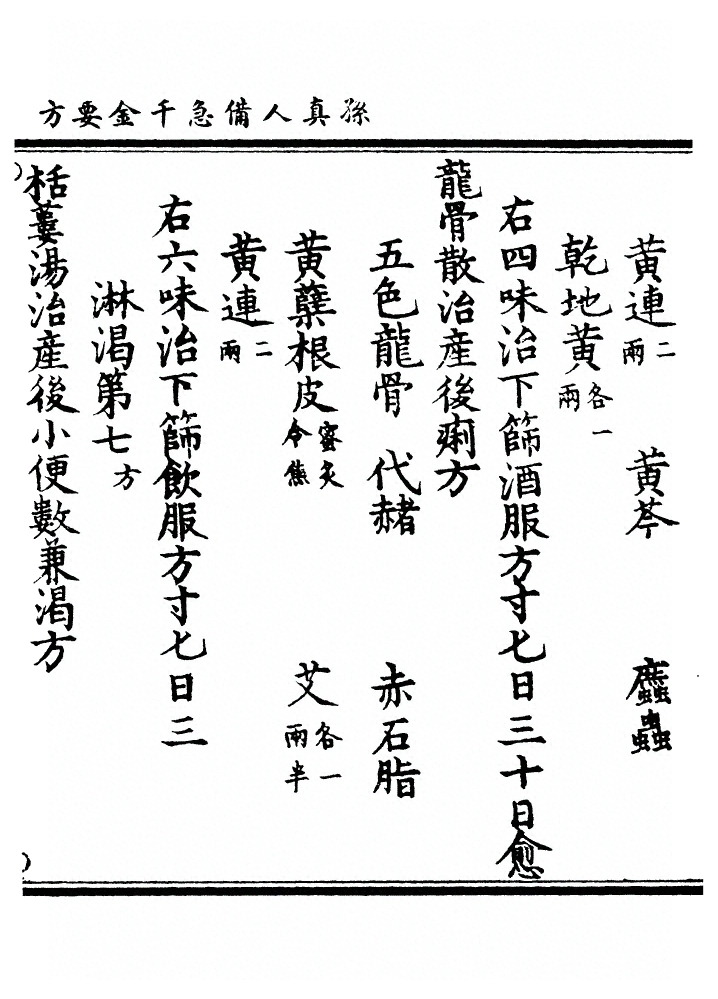 孫真人備急千金要方
黄連二兩 黄芩 䗪蟲
乾地黄各一兩
右四味治下篩酒服方寸匕日三十日愈
龍骨散治産後痢方
五色龍骨 代赭 赤石脂
黄蘗根皮蜜炙令焦 艾各一兩半
黄連二兩
右六味治下篩飲服方寸匕日三
淋渴第七方
栝蔞湯治産後小便數兼渴方